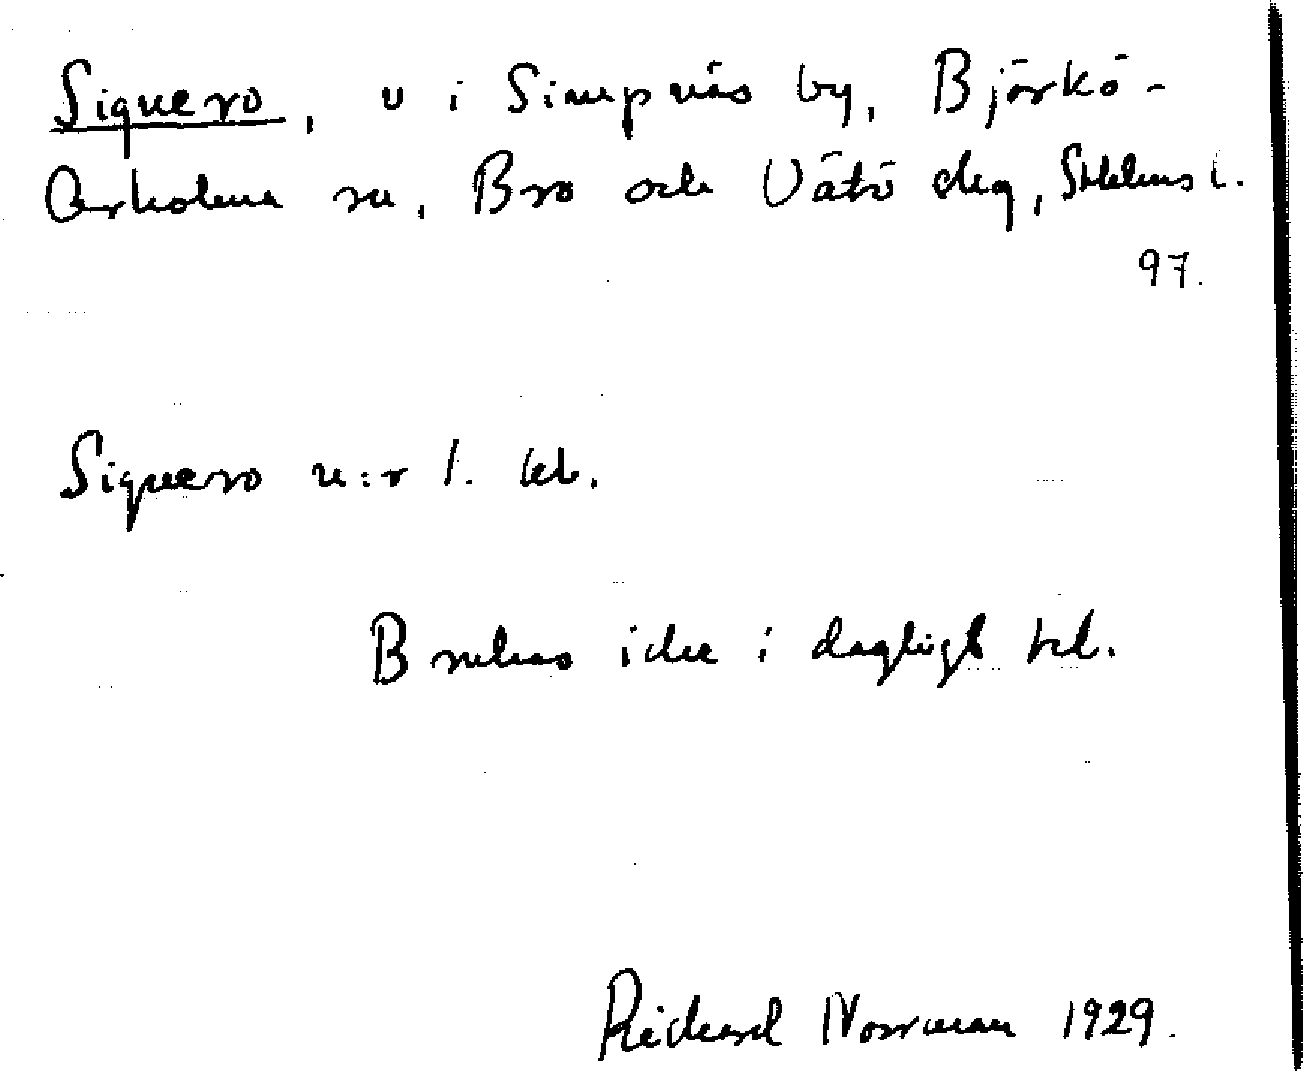 Signero, v i Simpnäs by, Björkö-
Arholma sn, Bro och Vätö skg, Sthlms l.
97.
Signero n:r 1. kb.
Brukas icke i dagligt tal.
Richard Norrman 1929.